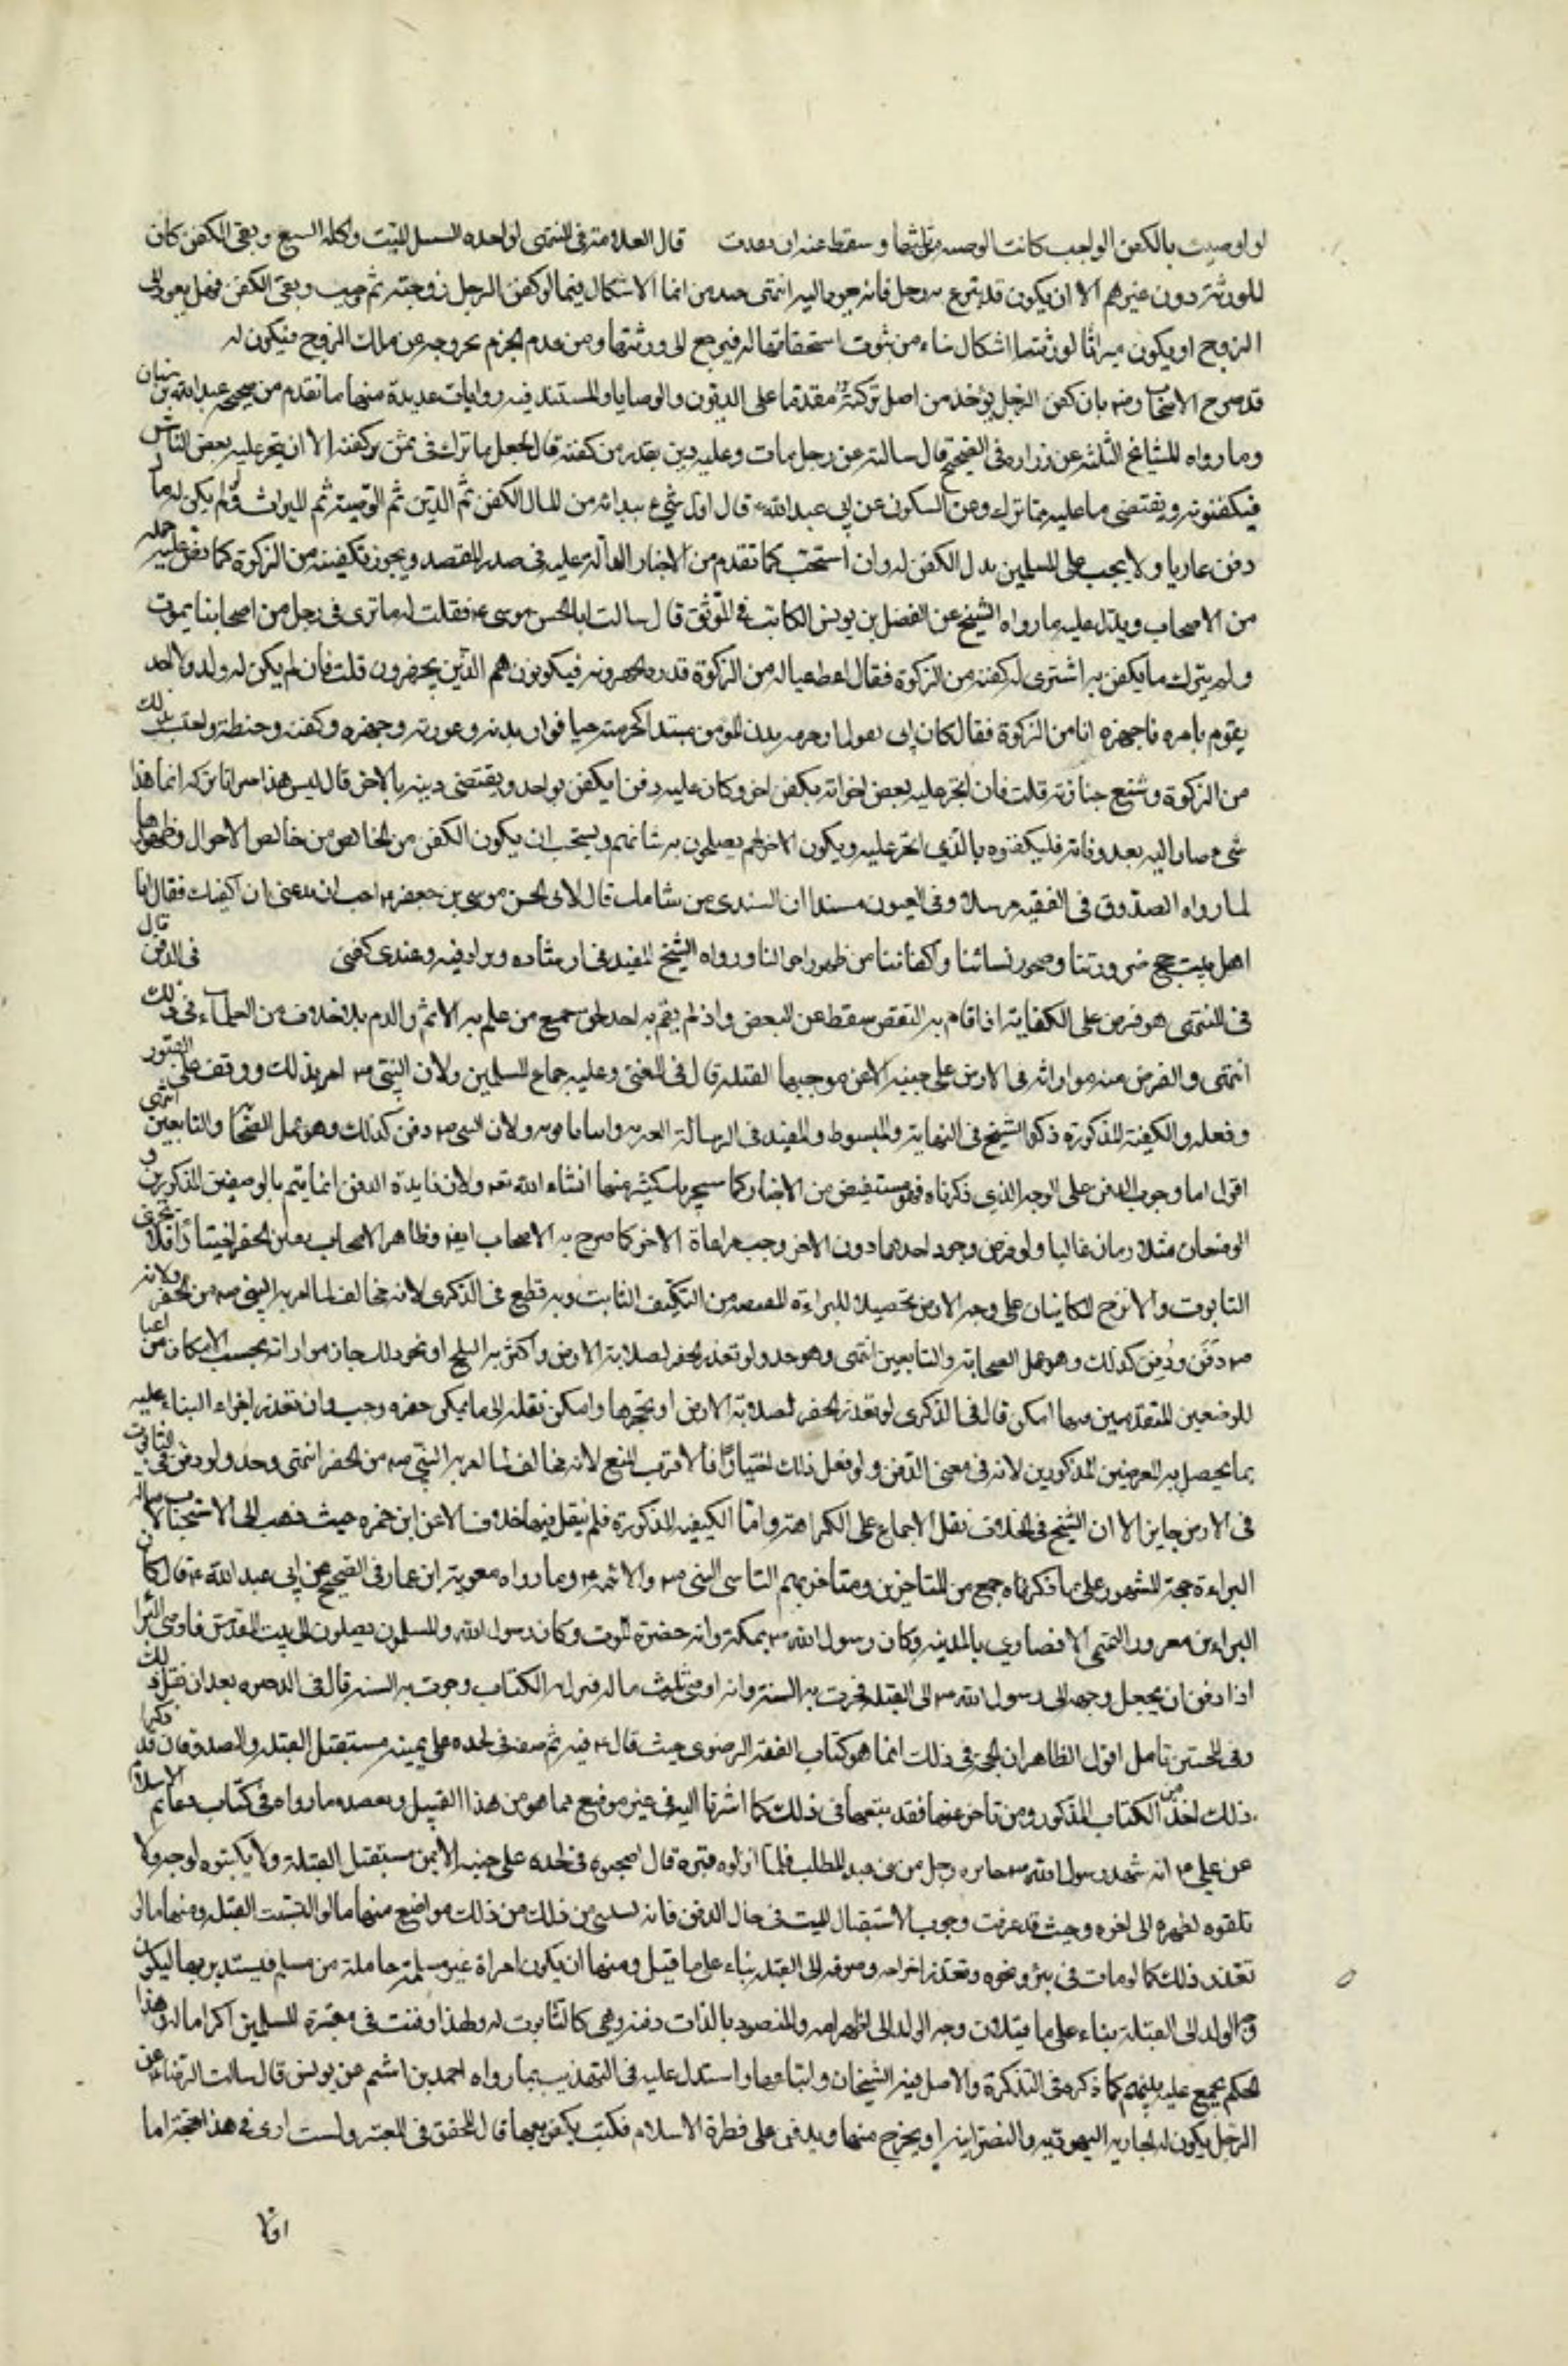 لو اوصيت بالكفن الواجب كانت الوصية من ثلثها و سقط عنه ان نفذت قال العلامة في المنتهى لو اخذ السيل الميت او اكله السبع و بقي الكفن كان
للورثة دون غيرهم الا ان يكون قد تبرع به رجل فانه يعود اليه انتهى انما الاشكال فيما لو كفن الرجل زوجته ثم و بقي الكفن فهل يعود الى
الزوج او يكون ميراثا لورثتها اشكال نشاء من ثبوت استحقاقها له فيرجع الى ورثتها و من عدم الجزم بخروجه عن ملك الزوج فيكون له
قد صرح الاصحاب رض بان كفن الرجل يؤخذ من اصل تركته مقدما على الديون و الوصايا و المستند فيه روايات عديدة منها ما تقدم من صحيح عبد الله بن سنان
و ما رواه المشايخ الثلثة عن زرارة في الصحيح قال سالته عن رجل مات و عليه دين بقدر ثمن كفنه قال يجعل ما ترك في ثمن كفنه الا ان يتجر عليه بعض الناس
فيكفنونه و يقضى ما عليه مما ترك و عن السكوني عن ابي عبد الله ع قال اول شيء يبدا به من المال الكفن ثم الدين ثم الوصية ثم الميراث و لو لم يكن له مال
دفن عاريا و لا يجب على المسلمين بذل الكفن له و ان استحب كما تقدم من الاخبار الدالة عليه في صدر المقصد و يجوز تكفينه من الزكوة كما نص عليه جملة
من الاصحاب و يدل عليه ما رواه الشيخ عن الفضل بن يونس الكاتب في الموثق قال سالت ابا الحسن موسى ع فقلت له ما ترى في رجل من اصحابنا يموت
و لم يترك ما يكفن به اشترى له كفنه من الزكوة فقال اعط عياله من الزكوة قدر ما يجهزونه فيكونون هم الذين يجهزون قلت فان لم يكن له ولد و لا احد
يقوم بامره فاجهزه انا من الزكوة فقال كان ابي يقول ان حرمة بدن المؤمن ميتا كحرمته حيا فوار بدنه و عورته و جهزه و كفنه و حنطه و احتسب بذلك
من الزكوة و شيع جنازته قلت فان اتجر عليه بعض اخوانه بكفن اخر و كان عليه دين ا يكفن بواحد و يقضى دينه بالاخر قال ليس هذا ميراثا تركه انما هذا
شيء صار اليه بعد وفاته فليكفنوه بالذي اتجر عليه و يكون الاخر لهم يصلحون به شانهم و يستحب ان يكون الكفن من الخالص من خالص الاموال و طهورها
لما رواه الصدوق في الفقيه مرسلا و في العيون مسندا ان السندي بن شاهك قال لابي الحسن موسى بن جعفر ع احب ان تدعني ان اكفنك فقال انا
اهل بيت حج صرورتنا و مهور نسائنا و اكفاننا من طهور اموالنا و رواه الشيخ المفيد في ارشاده و زاد فيه و عندي كفني في الدفن قال
في المنتهى هو فرض على الكفاية اذا قام به البعض سقط عن البعض و ان لم يقم به احد لحق جميع من علم به الاثم و الذم بلا خلاف من العلماء في ذلك
انتهى و الفرض منه مواراته في الارض على جنبه الايمن موجها الى القبلة قال في المعتبر و عليه اجماع المسلمين و لان النبي ص امر بذلك و وقف على القبور
و فعله و الكيفية المذكورة ذكرها الشيخ في النهاية و المبسوط و المفيد في الرسالة العزية و ابنا بابويه و لان النبي ص دفن كذلك و هو عمل الصحابة و التابعين انتهى
اقول اما وجوب الدفن على الوجه الذي ذكرناه فهو مستفيض من الاخبار كما سيمر بك كثير منها انشاء الله تعه و لان فايدة الدفن انما يتم بالوصفين المذكورين و
الوصفان متلازمان غالبا و لو فرض وجود احدهما دون الاخر وجب مراعاة الاخر كما صرح به الاصحاب ايضا و ظاهر الاصحاب تعين الحفر اختيارا فلا يجزي
التابوت و الازج الكاينان على وجه الارض تحصيلا للبراءة اليقينية من التكليف الثابت و به قطع في الذكرى لانه مخالف لما امر به النبي ص من الحفر و لانه
ص دفن و دُفِن كذلك و هو عمل الصحابة و التابعين انتهى و هو جيد و لو تعذر الحفر لصلابة الارض او كثرة الثلج او نحو ذلك جاز مواراته بحسب الامكان مراعيا
للوصفين المتقدمين مهما امكن قال في الذكرى لو تعذر الحفر لصلابة الارض او تحجرها و امكن نقله الى ما يمكن حفره وجب و ان تعذر اجزاء البناء عليه
بما يحصل به الغرضين المذكورين لانه في معنى الدفن و لو فعل ذلك اختيارا فالاقرب المنع لانه مخالف لما امر به النبي ص من الحفر انتهى و جيد و لو دفن في التابوت
في الارض جايز الا ان الشيخ في الخلاف نقل الاجماع على الكراهة و اما الكيفية المذكورة فلم ينقل فيها خلاف الا عن ابن حمزة حيث ذهب الى الاستحباب لاصالة
البراءة حجة المشهور على ما ذكرناه جمع من المتاخرين و متاخريهم التاسي بالنبي ص و الائمة ع و ما رواه معوية ابن عمار في الصحيح عن ابي عبد الله ع قال كان
البراء بن معرور التميمي الانصاري بالمدينة و كان رسول الله ص بمكة و انه حضره الموت و كان رسول الله و المسلمون يصلون الى بيت المقدس فاوصى البراء
اذا دفن ان يجعل وجهه الى رسول الله ص الى القبلة فجرت به السنة و انه اوصى بثلث ماله فنزل به الكتاب و جرت به السنة قال في الذخيرة بعد ان نقل ذلك
و في الحجتين تامل اقول الظاهر ان الحجة في ذلك انما هو كتاب الفقه الرضوي حيث قال ع فيه ثم ضعه في لحده على يمينه مستقبل القبلة و الصدوقان قد ذكرا
ذلك اخذا من الكتاب المذكور و من تاخر عنهما فقد تبعهما في ذلك كما اشرنا اليه في غير موضع مما هو من هذا القبيل و يعضده ما رواه في كتاب دعائم الاسلام
عن علي ع انه شهد رسول الله ص جنازة رجل من بني عبد المطلب فلما انزلوه قبره قال اضجعوه في لحده على جنبه الايمن مستقبل القبلة و لا تكبوه لوجهه و لا
تلقوه لظهره الى اخره و حيث قد عرفت وجوب الاستقبال للميت في حال الدفن فانه يستثنى من ذلك مواضع منها ما لو التبست القبلة و منها ما لو
تعذر ذلك كما لو مات في بئر و نحوه و تعذر اخراجه و صرفه الى القبلة بناء على ما قيل و منها ان يكون امراة غير مسلمة حاملة من مسلم فيستدبر بها ليكون
وجه الولد الى القبلة بناء على ما قيل ان وجه الولد الى ظهر امه و المقصود بالذات دفنه و هي كالتابوت له و لهذا دفنت في مقبرة المسلمين اكراما له و هذا
الحكم مجمع عليه بينهم كما ذكره في التذكرة و الاصل فيه الشيخان و اتباعهما و استدل عليه في التهذيب بما رواه احمد بن اشيم عن يونس قال سالت الرضا ع عن
الرجل يكون له الجارية اليهودية و النصرانية او يخرج منها و يدفن على فطرة الاسلام فكتب يدفن معها قال المحقق في المعتبر و لست ارى في هذا حجة اما
اولا